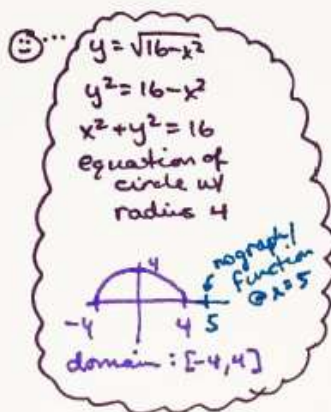 y = √16-x²
y² = 16-x²
x² + y² = 16
equation of
circle w/
radius 4
4
no graph/
function
@ x=5
-4 4 5
domain : [-4, 4]